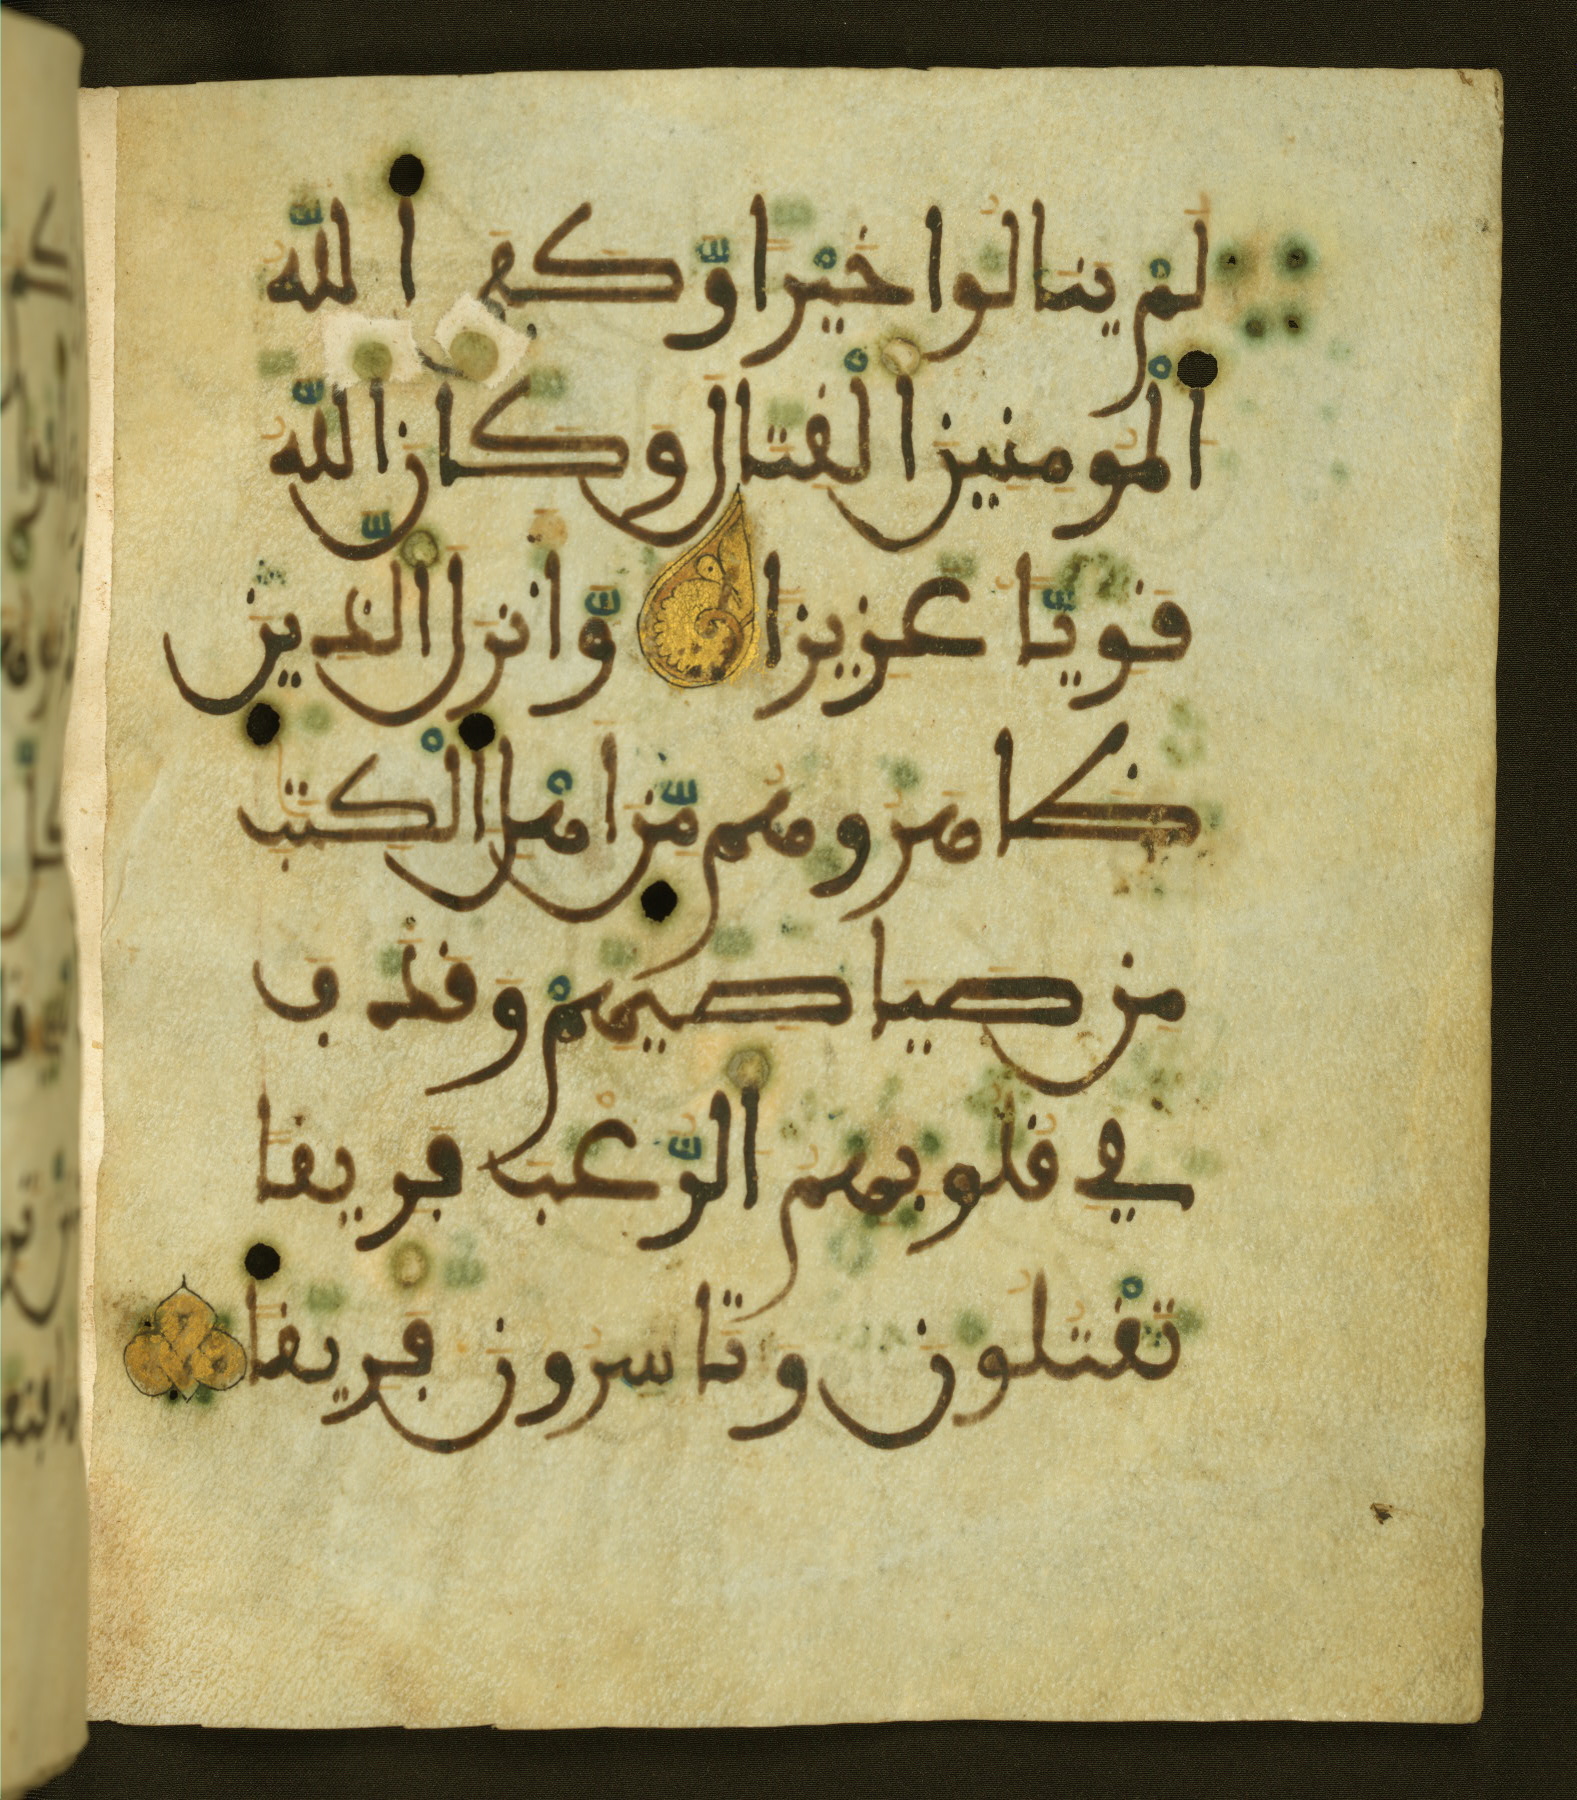 لم ينالوا خيرا وكفى الله
المومنين القتال وكان الله
قويا عزيزا وانزل الذين
ظاهروهم من اهل الكتب
من صياصيهم وقذف
في قلوبهم الرعب فريقا
تقتلون وتاسرون فريقا